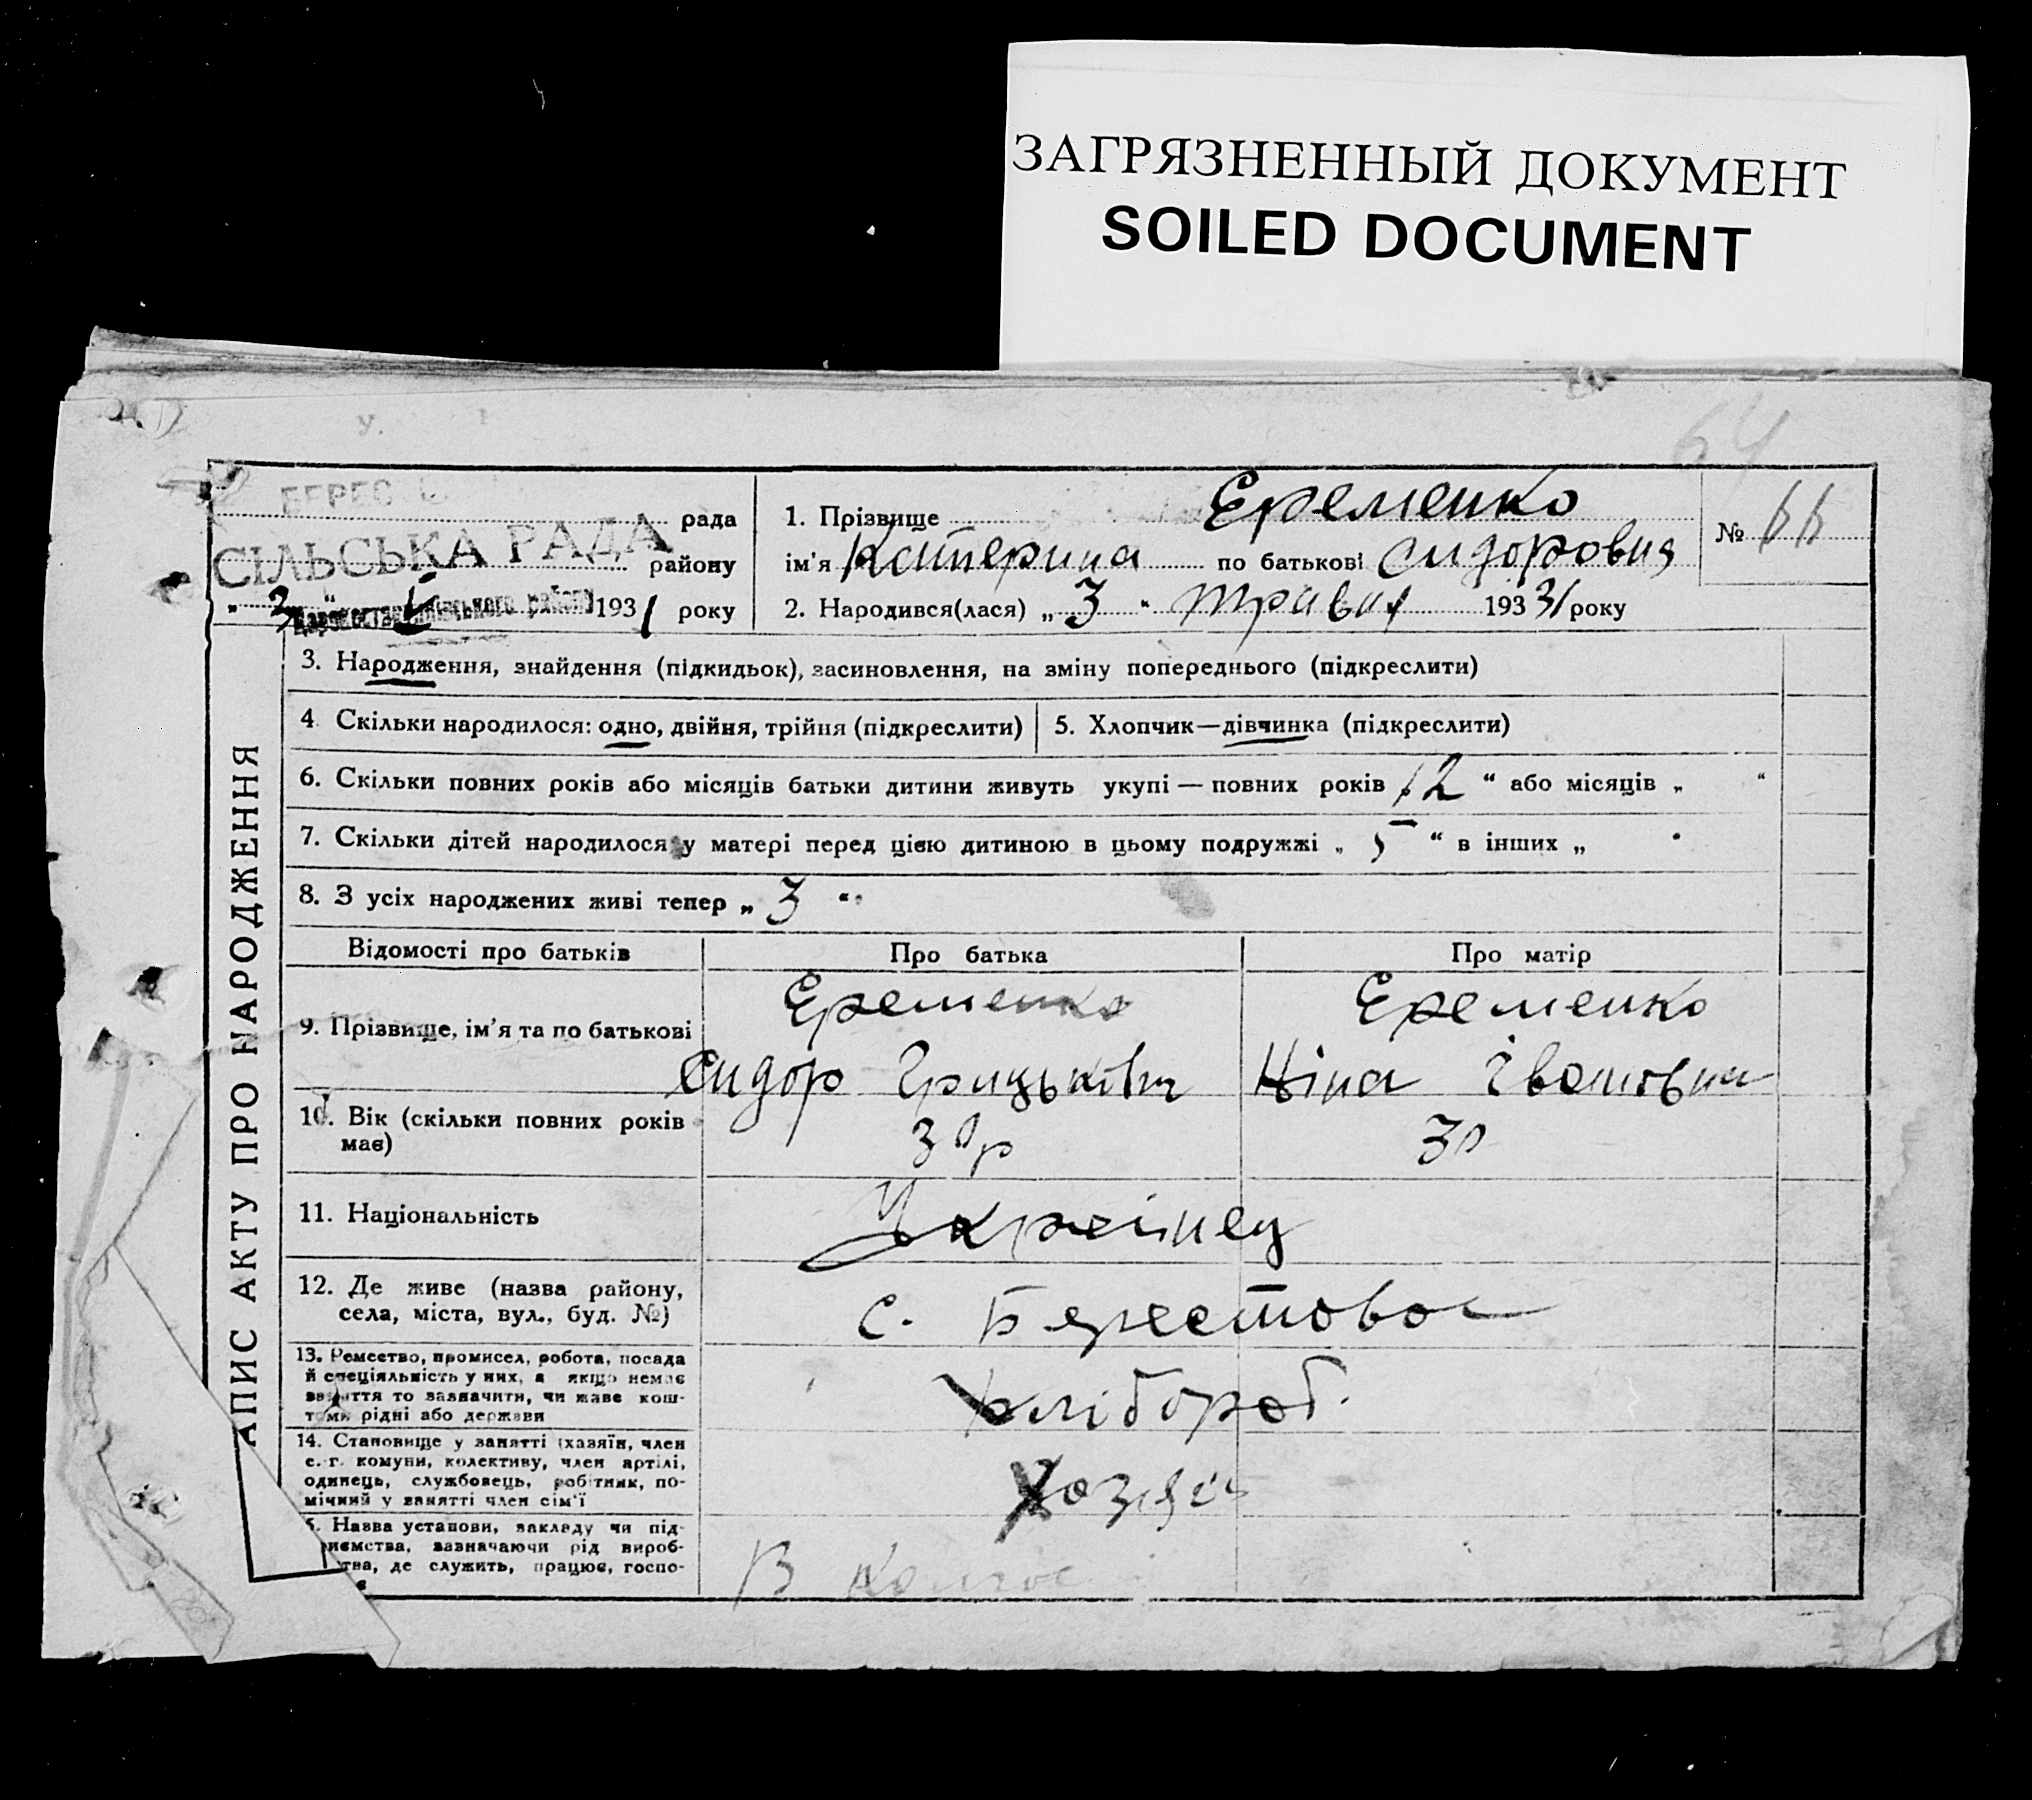 ЗАГРЯЗНЕННЫЙ ДОКУМЕНТ
SOILED DOCUMENT
64
рада
СІЛЬСЬКА РАДА
району
„ 3 “ V 1931 року
1. Прізвище Еременко
ім'я Катерина по батькові Сидоровна
2. Народився(лася) „ 3 “ травня 193 31 року
№ 66
АПИС АКТУ ПРО НАРОДЖЕННЯ
3. Народження, знайдення (підкидьок), засиновлення, на зміну попереднього (підкреслити)
4. Скільки народилося: одно, двійня, трійня (підкреслити)
5. Хлопчик—дівчинка (підкреслити)
6. Скільки повних років або місяців батьки дитини живуть укупі — повних років „ 12 “ або місяців „ “
7. Скільки дітей народилося у матері перед цією дитиною в цьому подружжі „ 5 “ в інших „ “
8. З усіх народжених живі тепер „ 3 “
Відомості про батьків
Про батька
Про матір
9. Прізвище, ім'я та по батькові
Еременко
Сидор Грицькович
Еременко
Ніна Івановна
10. Вік (скільки повних років має)
30 р
30
11. Національність
Украінец
12. Де живе (назва району,
села, міста, вул., буд. №)
с. Берестовое
13. Ремество, промисел, робота, посада
й спеціяльність у них, а якщо немає
заняття то зазначити, чи живе кош-
тами рідні або держави
хлібороб.
14. Становище у занятті (хазяїн, член
с.-г. комуни, колективу, член артілі,
одинець, службовець, робітник, по-
мічний у занятті член сім'ї
Хозяїн
5. Назва установи, закладу чи під-
иємства, зазначаючи рід вироб-
тва, де служить, працює, госпо-
є
В колгос